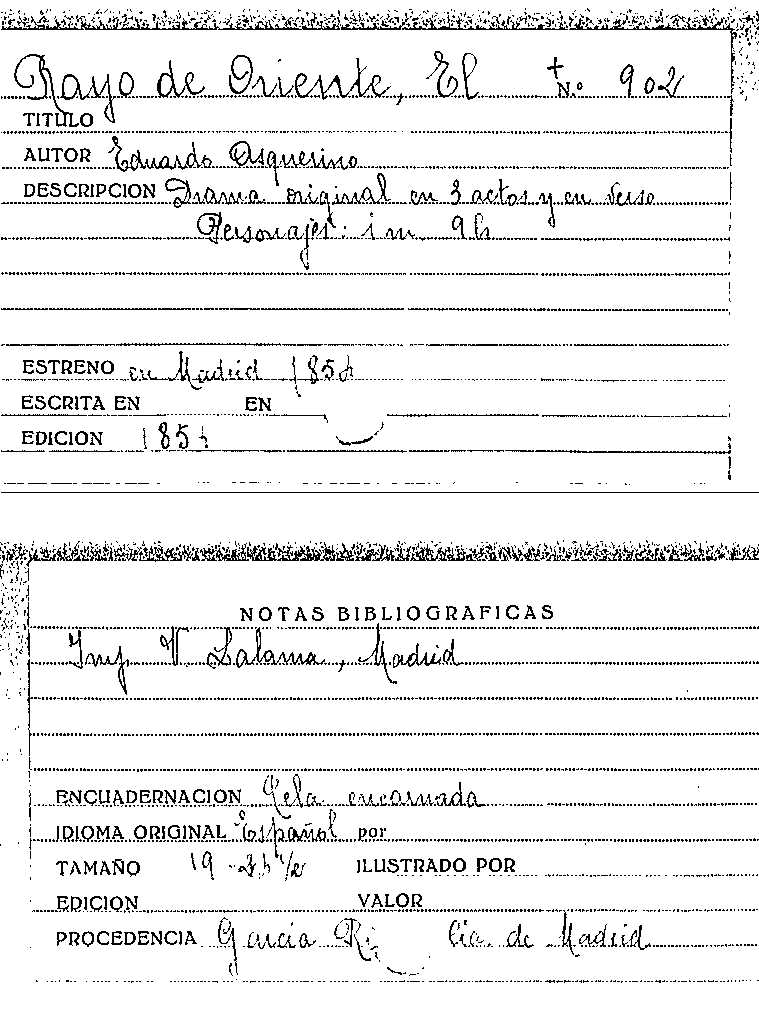 Rayo de Oriente, El + N.º 902
TITULO
AUTOR Eduardo Asquerino
DESCRIPCION Drama original en 3 actos y en verso
Personajes: 1 m 9 h
ESTRENO en Madrid
ESCRITA EN EN
EDICION
NOTAS BIBLIOGRAFICAS
Imp. V. Lalama, Madrid
ENCUADERNACION Tela encarnada
IDIOMA ORIGINAL Español por
TAMAÑO 19 ILUSTRADO POR
EDICION VALOR
PROCEDENCIA García Cia. de Madrid